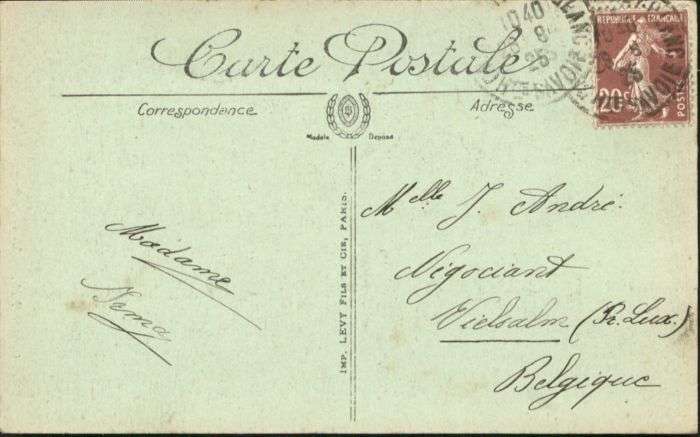 Carte Postale
Correspondance
Adresse
Modèle Déposé
RÉPUBLIQUE FRANÇAISE
20c
POSTES
10 40
25
SAVOIE
Melle J. André.
Négociant
Vielsalm (Pr. Lux.)
Belgique
Madame
IMP. LEVY FILS ET CIE, PARIS.